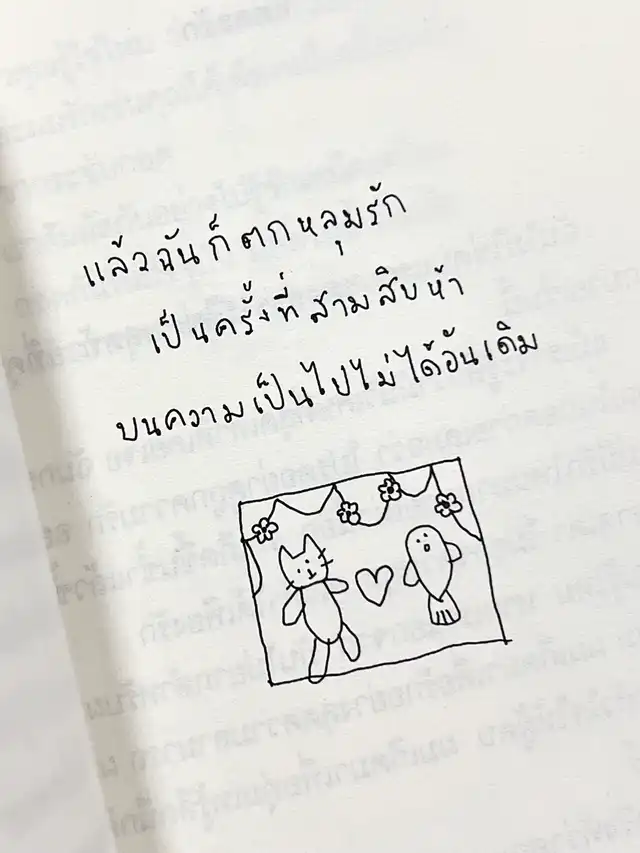 แล้วฉันก็ตกหลุมรัก
เป็นครั้งที่สามสิบห้า
บนความเป็นไปไม่ได้อันเดิม